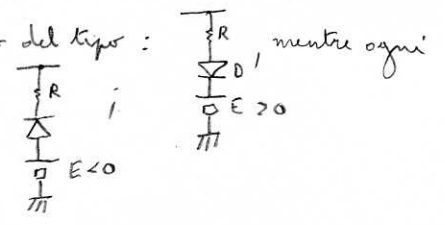 del tipo :
R
D
E > 0
, mentre ogni
R
E < 0
;